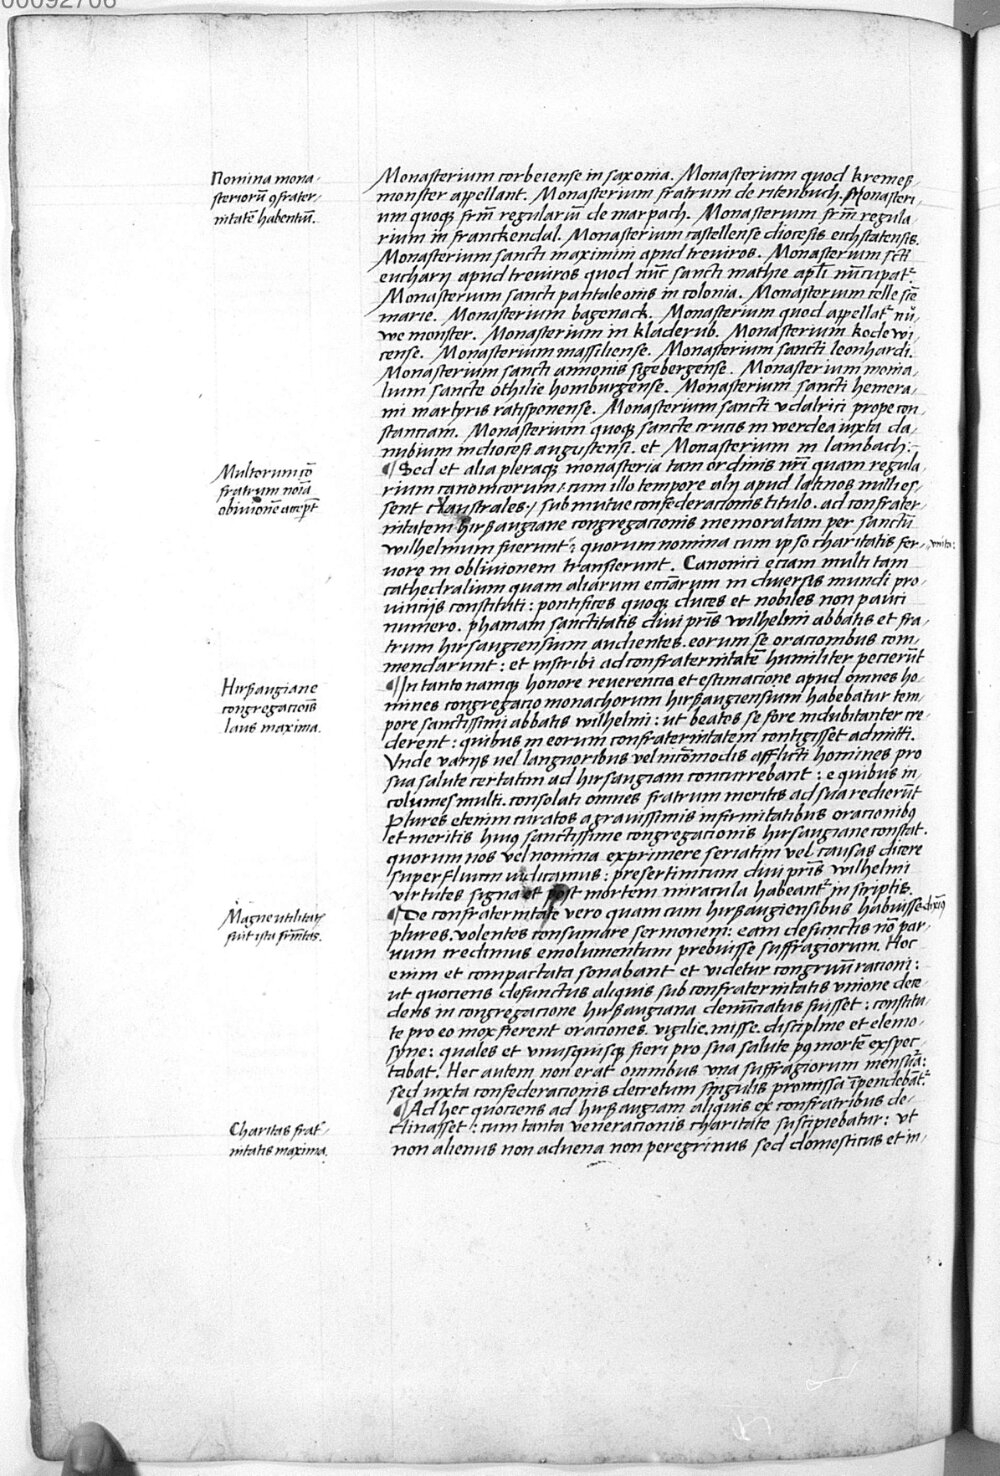 00092706
Nomina mona-
steriorũ ꝯfrater-
nitatẽ habentiũ.
Monasterium corbeiense in saxonia. Monasterium quod kremeß-
monster appellant. Monasterium fratrum de ritenbuch. Monasteri-
um quoqꝫ frm̃ regulariũ de marpach. Monasterium frm̃ regula
rium in franckendal. Monasterium castellense diocesis eichstatensis.
Monasterium sancti maximini apud treviros. Monasterium scti
eucharij apud treviros quod nũc sancti mathie apl̃i nũcupat᷑.
Monasterium sancti pantaleonis in colonia. Monasterium celle scẽ
marie. Monasterium bagenack. Monasterium quod appellat᷑ nů-
we monster. Monasterium in kladerub. Monasterium kodewi-
cense. Monasterium massiliense. Monasterium sancti leonhardi.
Monasterium sancti annonis sigebergense. Monasterium monia-
lium sancte othilie homburgense. Monasterium sancti hemera-
mi martyris ratisponense. Monasterium sancti vdalrici prope con-
stanciam. Monasterium quoqꝫ sancte crucis in werdea iuxta da-
nubium in diocesi augustensi. et Monasterium in lambach:-
Multorum cõ
fratrum noĩa
obiuionẽ accep̃t
¶ Sed et alia pleraqꝫ monasteria tam ordinis nr̃i quam regula-
rium canonicorum: cum illo tempore alij apud latinos multi es-
sent claustrales: sub mutue confederacionis titulo. ad confrater-
nitatem hirßaugiane congregacionis memoratam per sanctũ
wilhelmum fuerunt: quorum nomina cum ipso charitatis fer- vniti:
uore in oblivionem transierunt. Canonici eciam multi tam
cathedralium quam aliarum ecciarum in diversis mundi pro-
uincijs constituti: pontifices quoqꝫ duces et nobiles non pauci
numero. phamam sanctitatis divi pr̃is wilhelmi abbatis et fra-
trum hirsaugiensium audientes. eorum se oracionibus com-
mendarunt: et inscribi ad confraternitatẽ humiliter pecierũt
Hirßaugiane
congregacioĩs
laus maxima.
¶ In tanto namqꝫ honore reverencia et estimacione apud omnes ho-
mines congregacio monachorum hirßaugiensium habebatur tem-
pore sanctissimi abbatis wilhelmi: ut beatos se fore indubitanter cre-
derent: quibus in eorum confraternitatem contigisset admitti.
Vnde varijs uel languoribus vel incõmodis afflicti homines pro
sua salute certatim ad hirsaugiam concurrebant: e quibus in-
columes multi. consolati omnes fratrum meritis ad sua redierũt
Plures etenim curatos a gravissimis infirmitatibus oracionibꝰ
et meritis huius sanctissime congregacionis hirsaugiane constat.
quorum nos vel nomina exprimere seriatim vel causas dicere
superfluum iudicamus: presertim cum divi pr̃is wilhelmi
virtutes signa et post mortem miracula habeant᷑ in scriptis.
Magne utilitatis
fuit ista frñitas.
¶ De confraternitate vero quam cum hirßaugiensibus habuisse dixiꝰ
plures. volentes consumare sermonem: eam defunctis nõ par-
uum credimus emolumentum prebuisse suffragiorum. Hoc
enim et compactata sonabant et videtur congruũ racioni:
ut quociens defunctus aliquis sub confraternitatis vnione dece-
dens in congregacione hirßaugiana denũciatus fuisset: constitu-
te pro eo mox fierent oraciones. vigilie. misse. discipline et elemo-
syne: quales et vnusquisqꝫ fieri pro sua salute pꝰ mortẽ exspec-
tabat. Hec autem non erat omnibus vna suffragiorum mensũa:
sed iuxta confederacionis decretum singulis promissa ĩpendebãt᷑.
Charitas frat᷑-
nitatis maxima.
¶ Ad hec quociens ad hirßaugiam aliquis ex confratribus de-
clinasset: cum tanta veneracionis charitate suscipiebatur: vt
non alienus non advena non peregrinus sed domesticus et in-